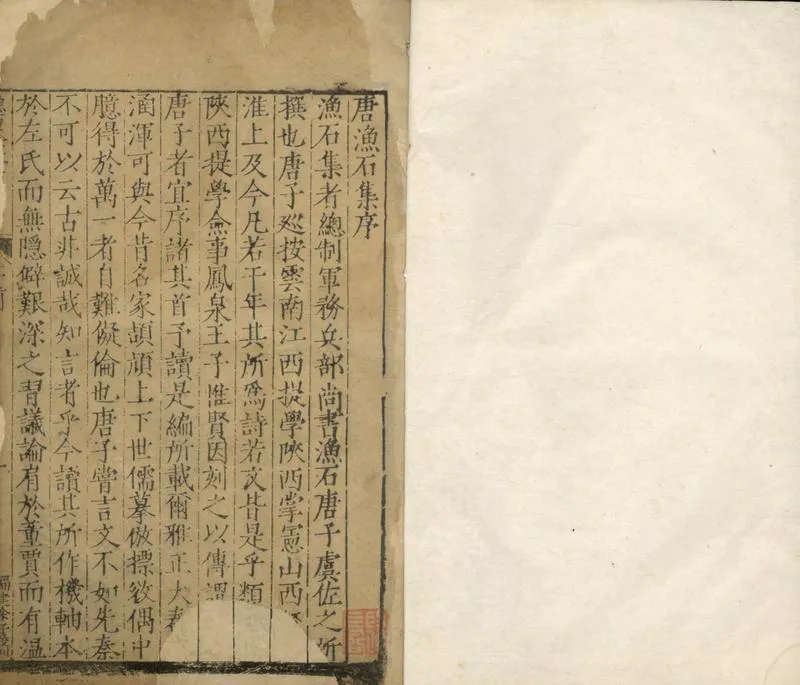 唐漁石集序
漁石集者總制軍務兵部尚書漁石唐子虞佐之所
撰也唐子廵按雲南江西提學陝西掌憲山西
淮上及今凡若干年其所爲詩若文皆是乎類
陝西提學僉事鳳泉王子惟賢因刻之以傳謂
唐子者宜序諸其首予讀是編所載爾雅正大
涵渾可與今昔名家頡頏上下世儒摹倣摽敚偶中
臆得於萬一者自難儗倫也唐子嘗言文不如先秦
不可以云古非誠哉知言者乎今讀其所作機軸本
於左氏而無隱僻艱深之習議論有於董賈而有溫